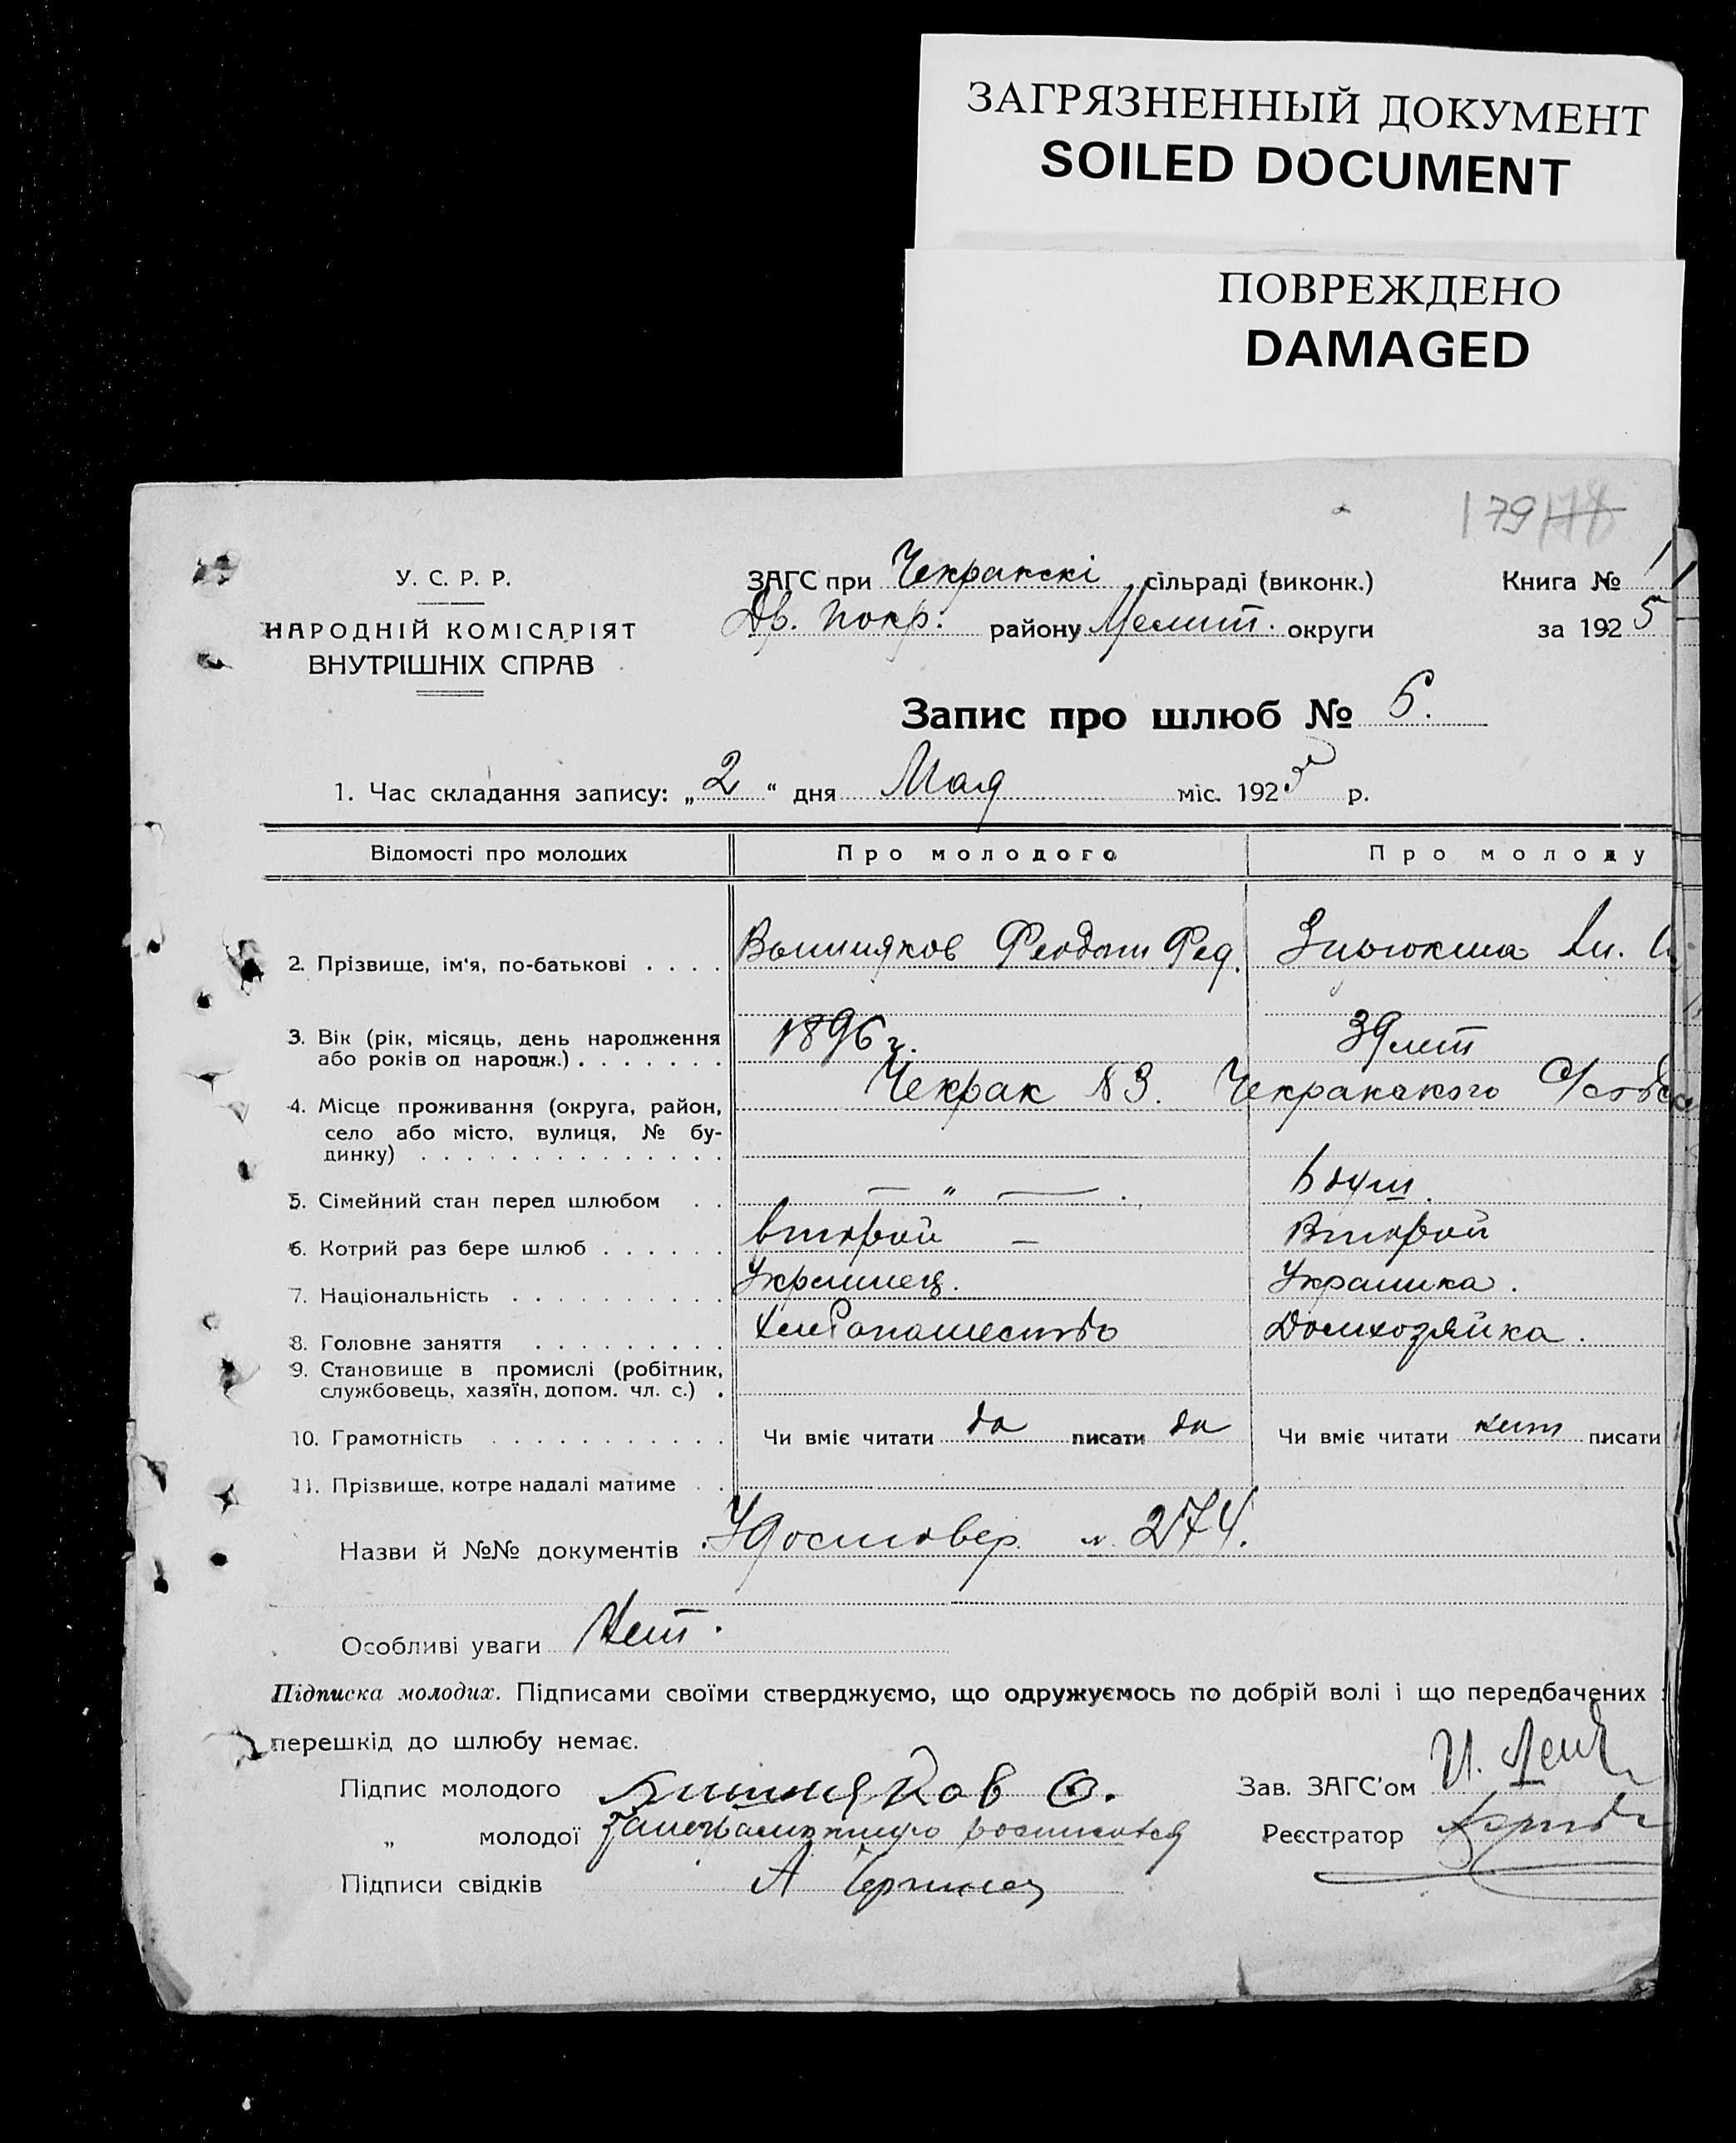 ЗАГРЯЗНЕННЫЙ ДОКУМЕНТ
SOILED DOCUMENT
ПОВРЕЖДЕНО
DAMAGED
179
У. С. Р. Р.
НАРОДНІЙ КОМІСАРІЯТ
ВНУТРІШНІХ СПРАВ
ЗАГС при Чекракскі сільраді (виконк.)
Др. покр. району Мелит. округи
Книга № 1
за 1925
Запис про шлюб № 6.
1. Час складання запису: „2“ дня Мая міс. 192 р.
Відомості про молодих Про молодого Про молоду
2. Прізвище, ім'я, по-батькові . . . . Вышняков Феодот Фед.
3. Вік (рік, місяць, день народження 1896 г. 39 лет
або років од народж.) . . . . . . .
Чекрак №3. Чекракского
4. Місце проживання (округа, район,
село або місто, вулиця, № бу-
динку) . . . . . . . . . . . . . .
5. Сімейний стан перед шлюбом . . — „ — .
6. Котрий раз бере шлюб . . . . . . второй — Второй
7. Національність . . . . . . . . . . Украинец. Украинка.
8. Головне заняття . . . . . . . . . Домхозяйка.
9. Становище в промислі (робітник,
службовець, хазяїн, допом. чл. с.) .
10. Грамотність . . . . . . . . . . . Чи вміє читати да писати да Чи вміє читати нет писати
11. Прізвище, котре надалі матиме . .
Назви й №№ документів Удостовер. № 274.
Особливі уваги Нет.
Підписка молодих. Підписами своїми стверджуємо, що одружуємось по добрій волі і що передбачених
перешкід до шлюбу немає.
Підпис молодого Вишняков Ф. Зав. ЗАГС'ом
„ молодої за неграмотную Реєстратор
Підписи свідків А